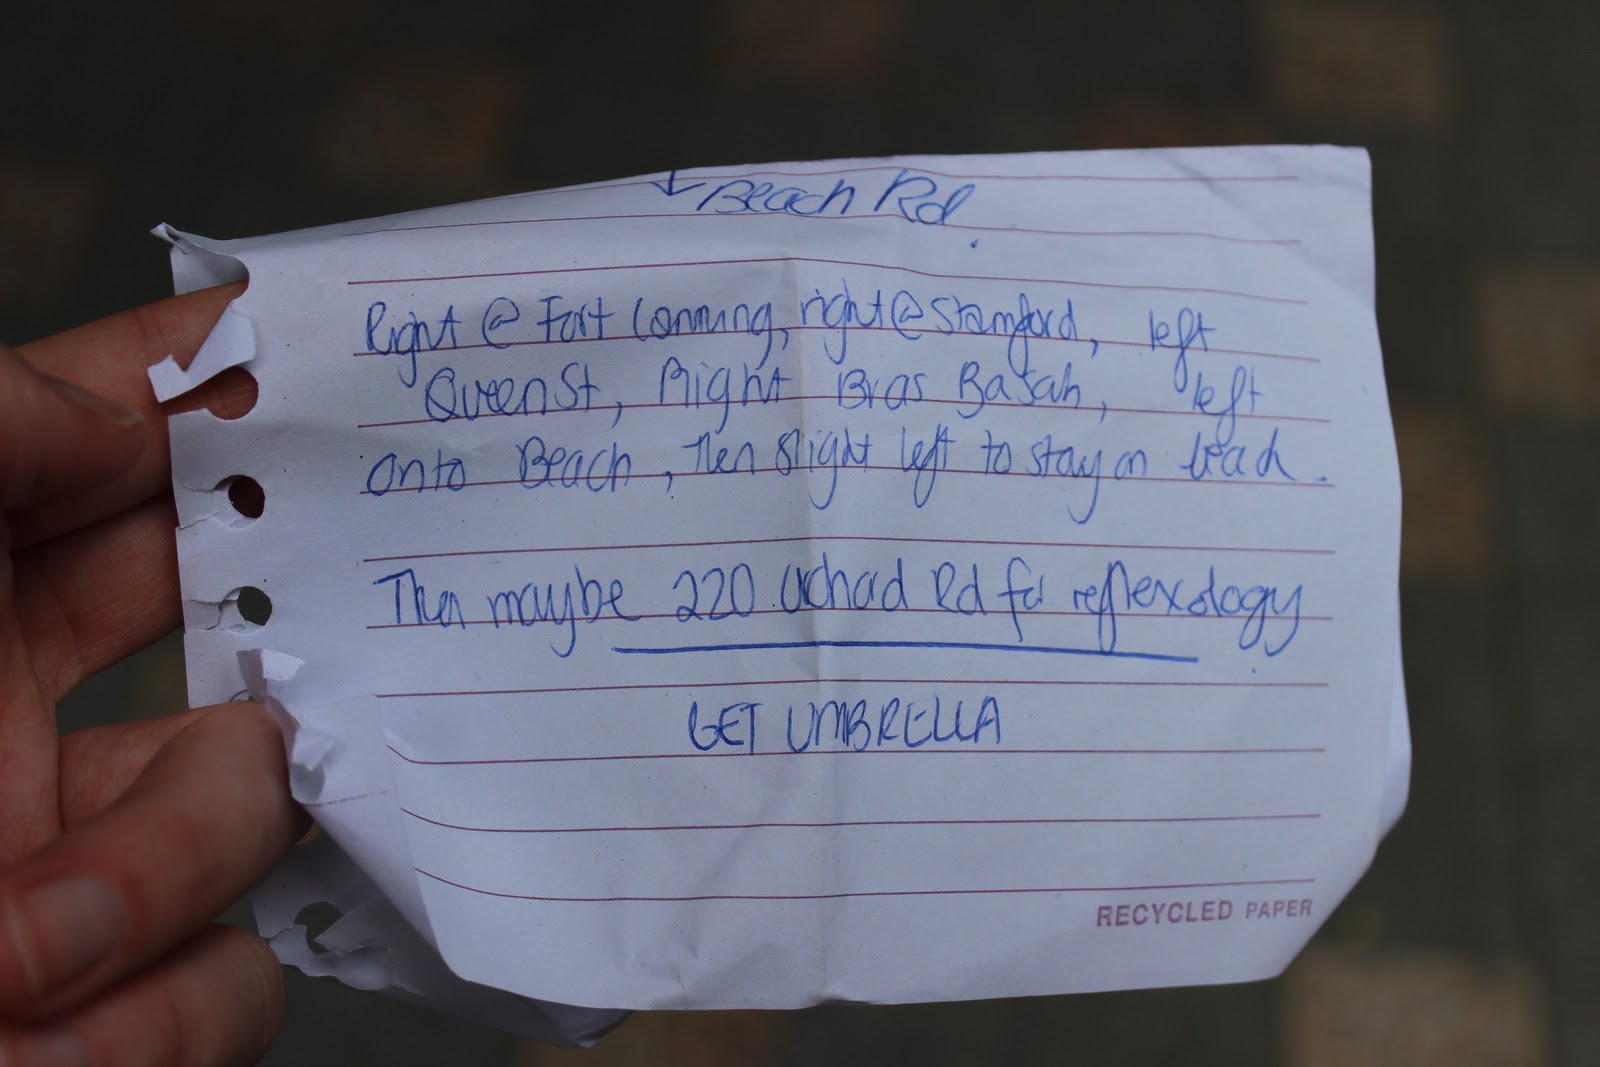 Beach Rd.
Right @ Fort Canning, right @ Stamford, left
Queen St, Right Bras Basah, left
onto Beach, then slight left to stay on beach.
Then maybe 220 Orchard Rd for reflexology
GET UMBRELLA
RECYCLED PAPER